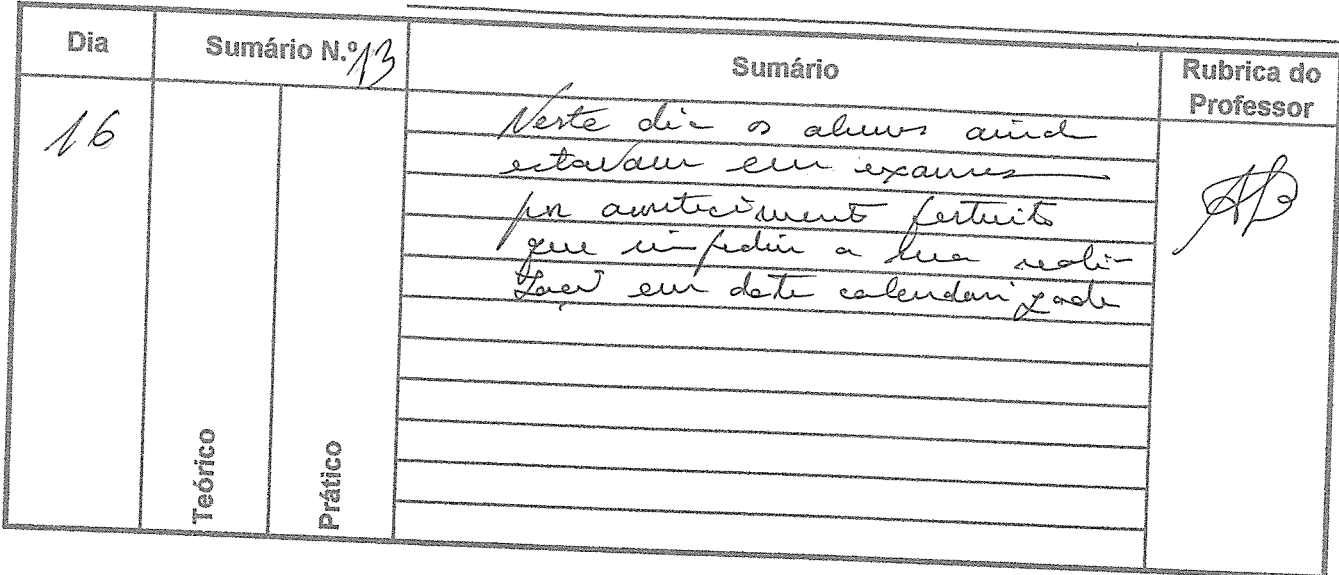 Dia
Sumário N.º 13
Sumário
Rubrica do
Professor
16
Neste dia os alunos ainda
estavam em exames
por acontecimento fortuito
que impediu a sua reali-
zação em data calendarizada
Teórico
Prático